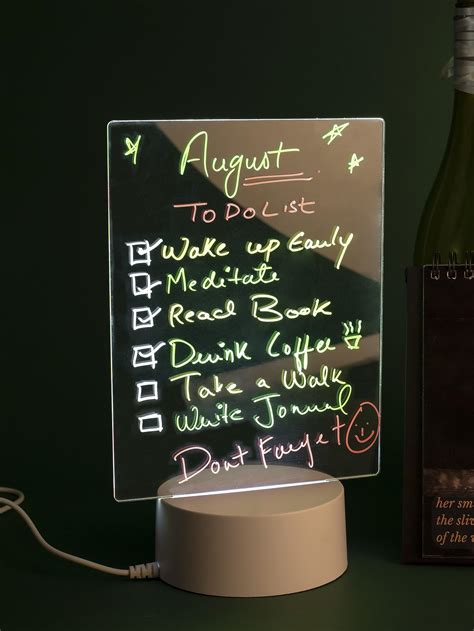 August
To Do List
Wake up Early
Meditate
Read Book
Drink Coffee
Take a Walk
Write Jornal
Dont Forget
her sm
the sliv
of the w